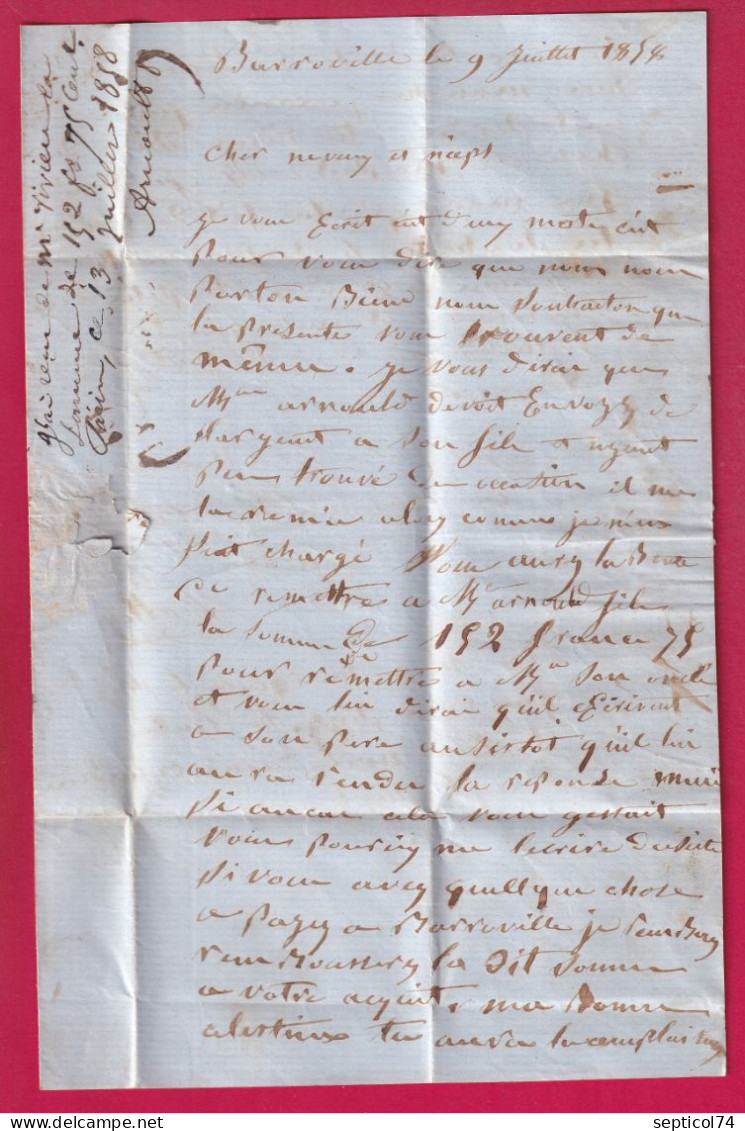 Barroville le 9 Juillet 1858
Cher neveux et nieps
je vous Ecrit cit dux moste cit
pour vous dire que nous nous
porton Biene nous souhaiton que
la presente vous trouvent de
mêmme. je vous dirai que
Mr arnould devoit Envoyez de
largent a son fils n'ayant
pas trouvé de occasion il me
la remie alors comme je mieux
siat chargé Vous aurez la Bonte
de remettre a Mr arnould fils
la somme de 152 francs 75
pour remettre a Mr son oncle
et vous lui dirai qu'il Ecrivent
a son pere ausistot qu'il lui
aura rendu la reponse mais
si aucun cela vous gessait
vous pouriez me lecrire de suite
si vous avez quellque chose
a payez a Barroville je
remBousserez la Dit somme
a votre acquit ma Bonne
alestinne tu aura la complai
J'ai reçu de Mr Vivien la
somme de 152 fs 75 cent.
Paris, ce 13 Juillet 1858
Arnould
septicol74